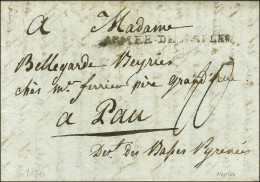 A Madame
ARMÉE DE NAPLES
Bellegarde Beyriès
chès mr. ferrier père grand'rue
a Pau
Dept. des Basses Pyrenées